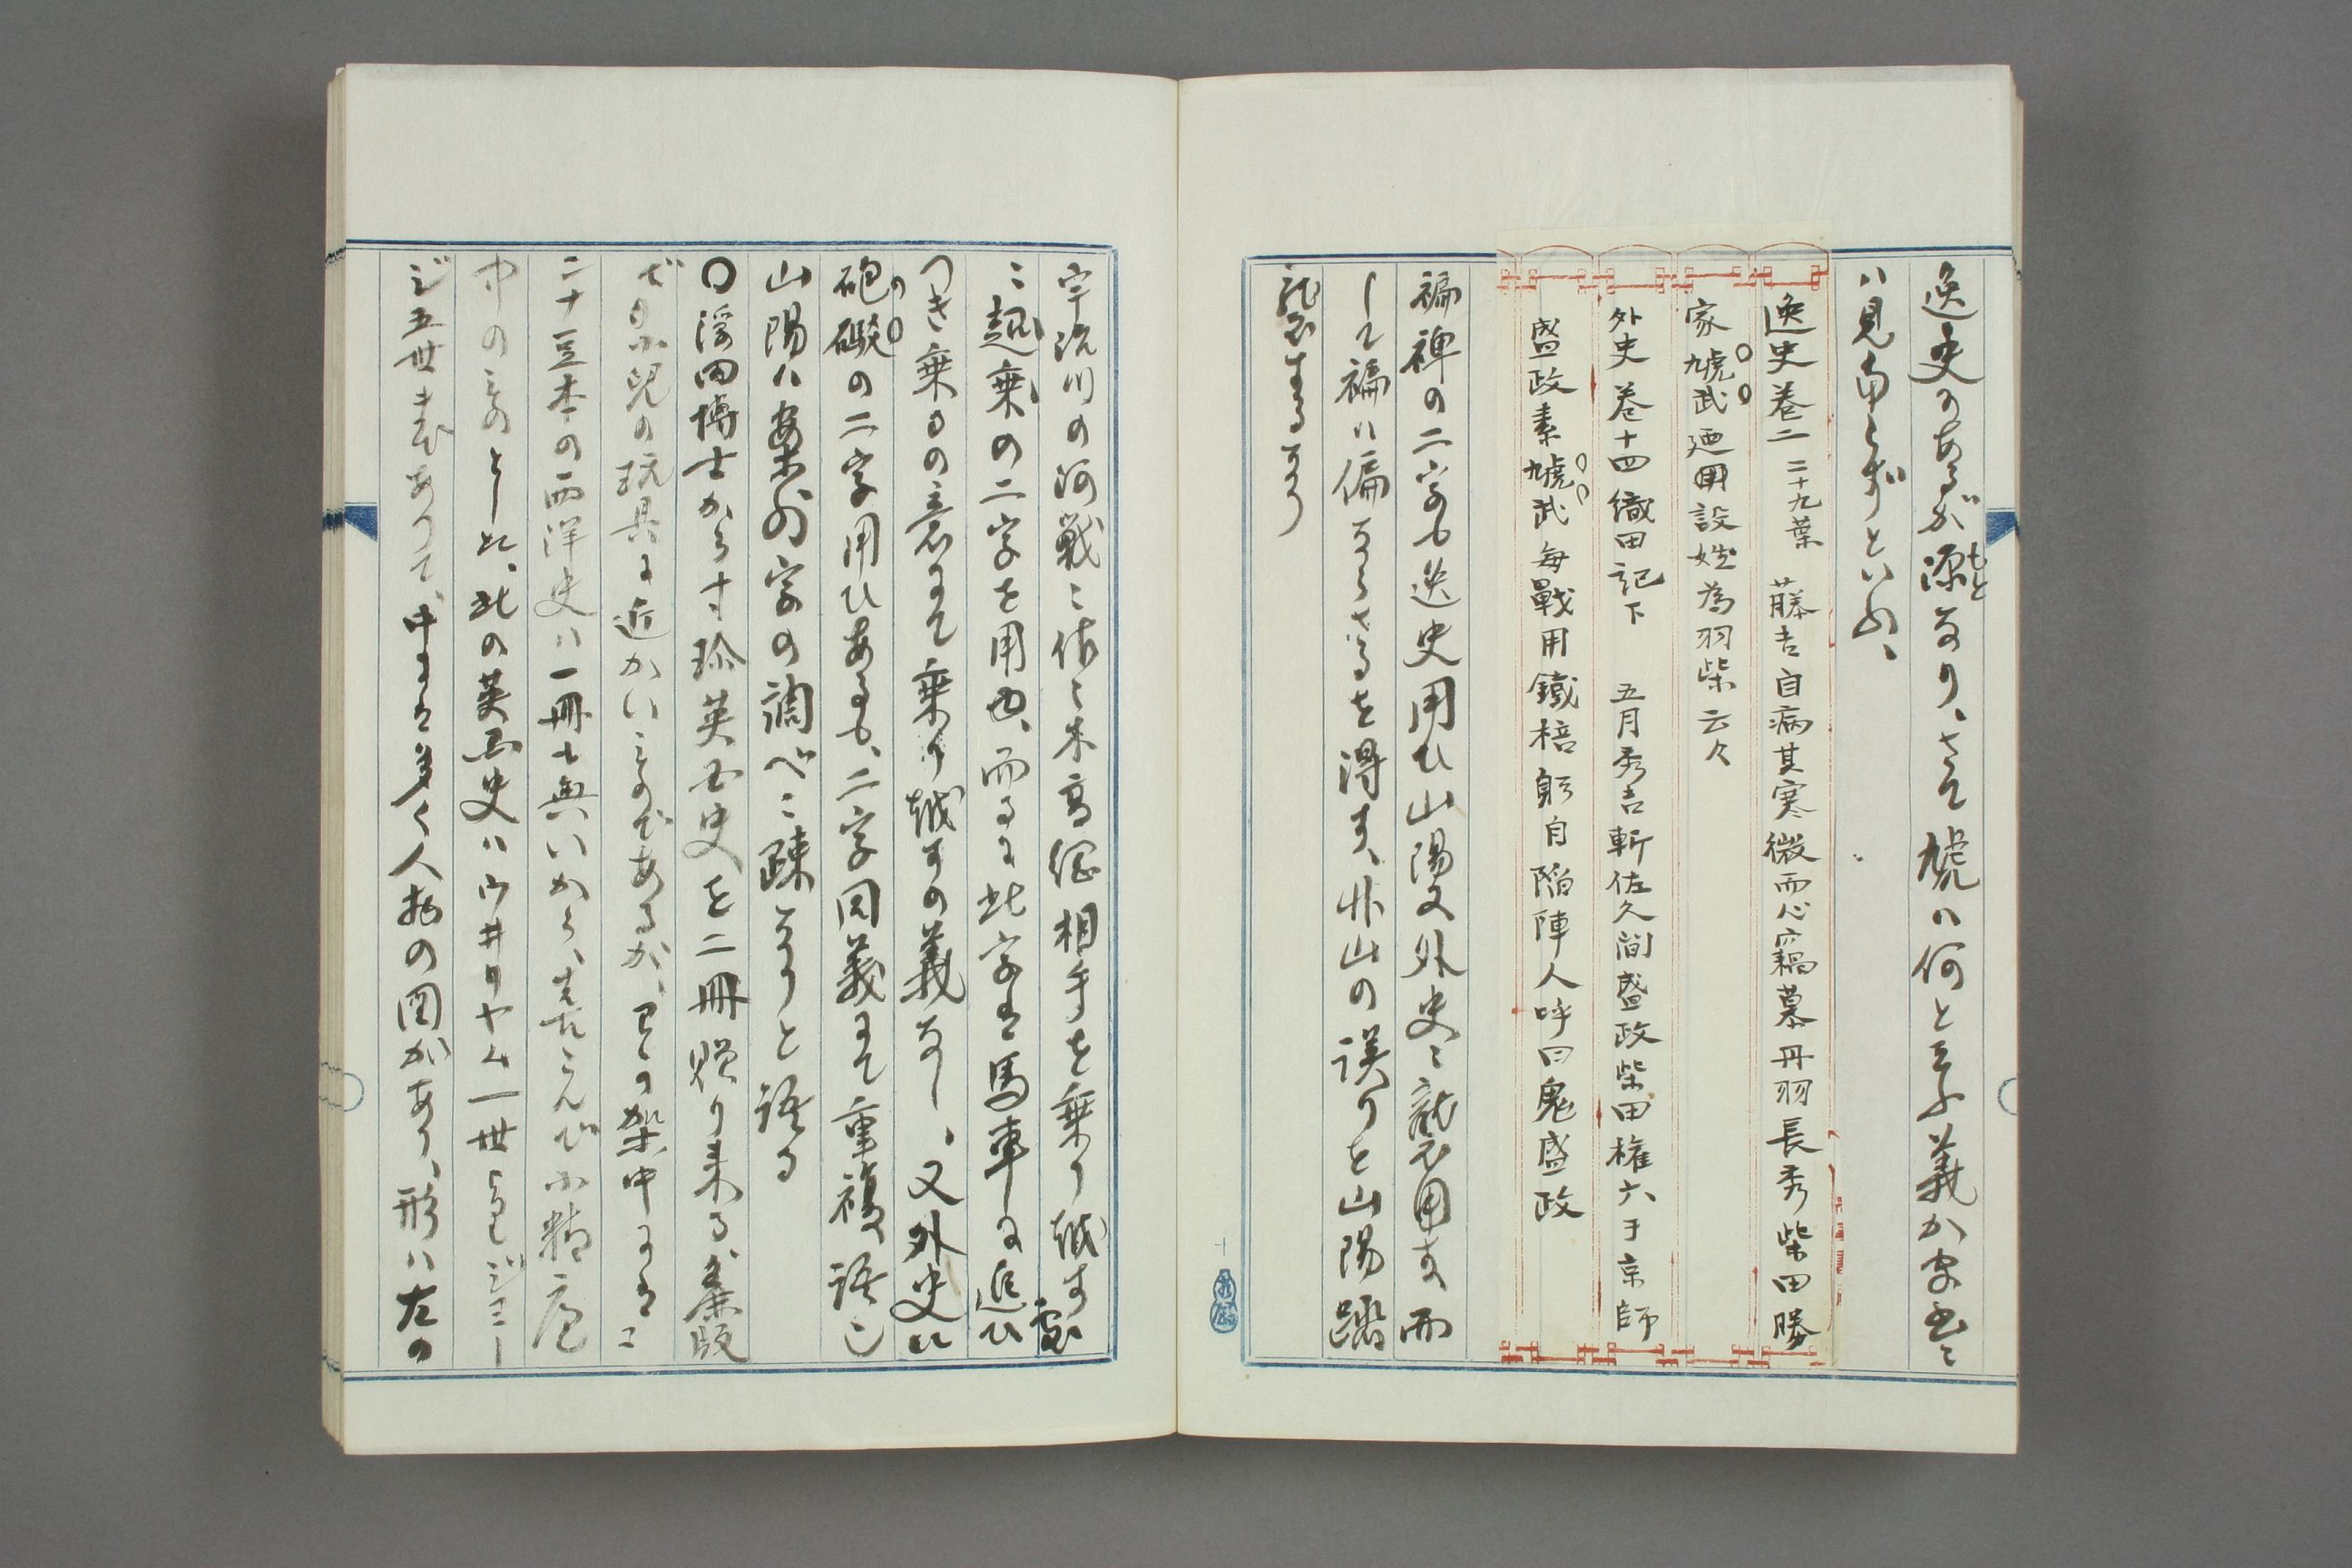 逸史のあるが源なり、さて虓ハ何と云ふ義か字書ニ
もと
ハ見当らずといふ、
逸史巻二 二十九葉 藤吉自病其寒微而心竊慕丹羽長秀柴田勝
家虓武廼冒設姓為羽柴云々
外史巻十四織田記下 五月秀吉斬佐久間盛政柴田権六于京師
盛政素虓武毎戰用鐵棓躬自陥陣人呼曰鬼盛政
褊裨の二字も逸史用ひ山陽又外史ニ襲用す、而
して褊ハ偏ならさるを得す、竹山の誤りを山陽踏
襲するなり
宇治川の河戦ニ佐々木高綱相手を乗り越す處
ニ超乗の二字を用ゆ、而るに此字は馬車に追ひ
つき乗るの意にて乗り越すの義なし、又外史に
砲礮の二字用ひあるも、二字同義にて重複語也
山陽ハ案外字の調べニ疎なりと語る
〇浮田博士から寸珍英国史を二冊贈り来る、廉版
で小児の玩具に近かいものであるが、予の架中には
二十豆本の西洋史ハ一冊も無いから、喜こんで小精廬
中のものとした、此の英国史ハウ井リヤム一世よりジヨー
ジ五世まであつて、中には多く人物の図があり、形ハ左の